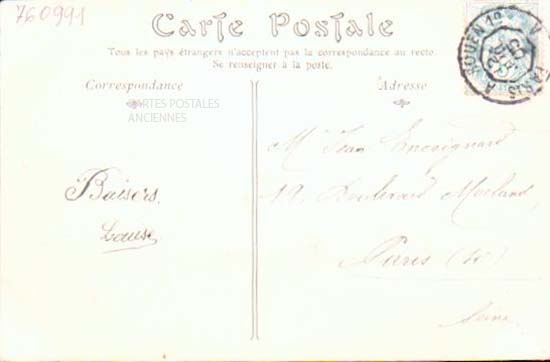 760991
Carte Postale
Tous les pays étrangers n'acceptent pas la correspondance au recto.
Se renseigner à la poste.
Correspondance
Adresse
CARTES POSTALES
ANCIENNES
Baisers,
Louise
M. Jean
19, Boulevard Morland
Paris (IV)
Seine
ROUEN 1º
PARIS